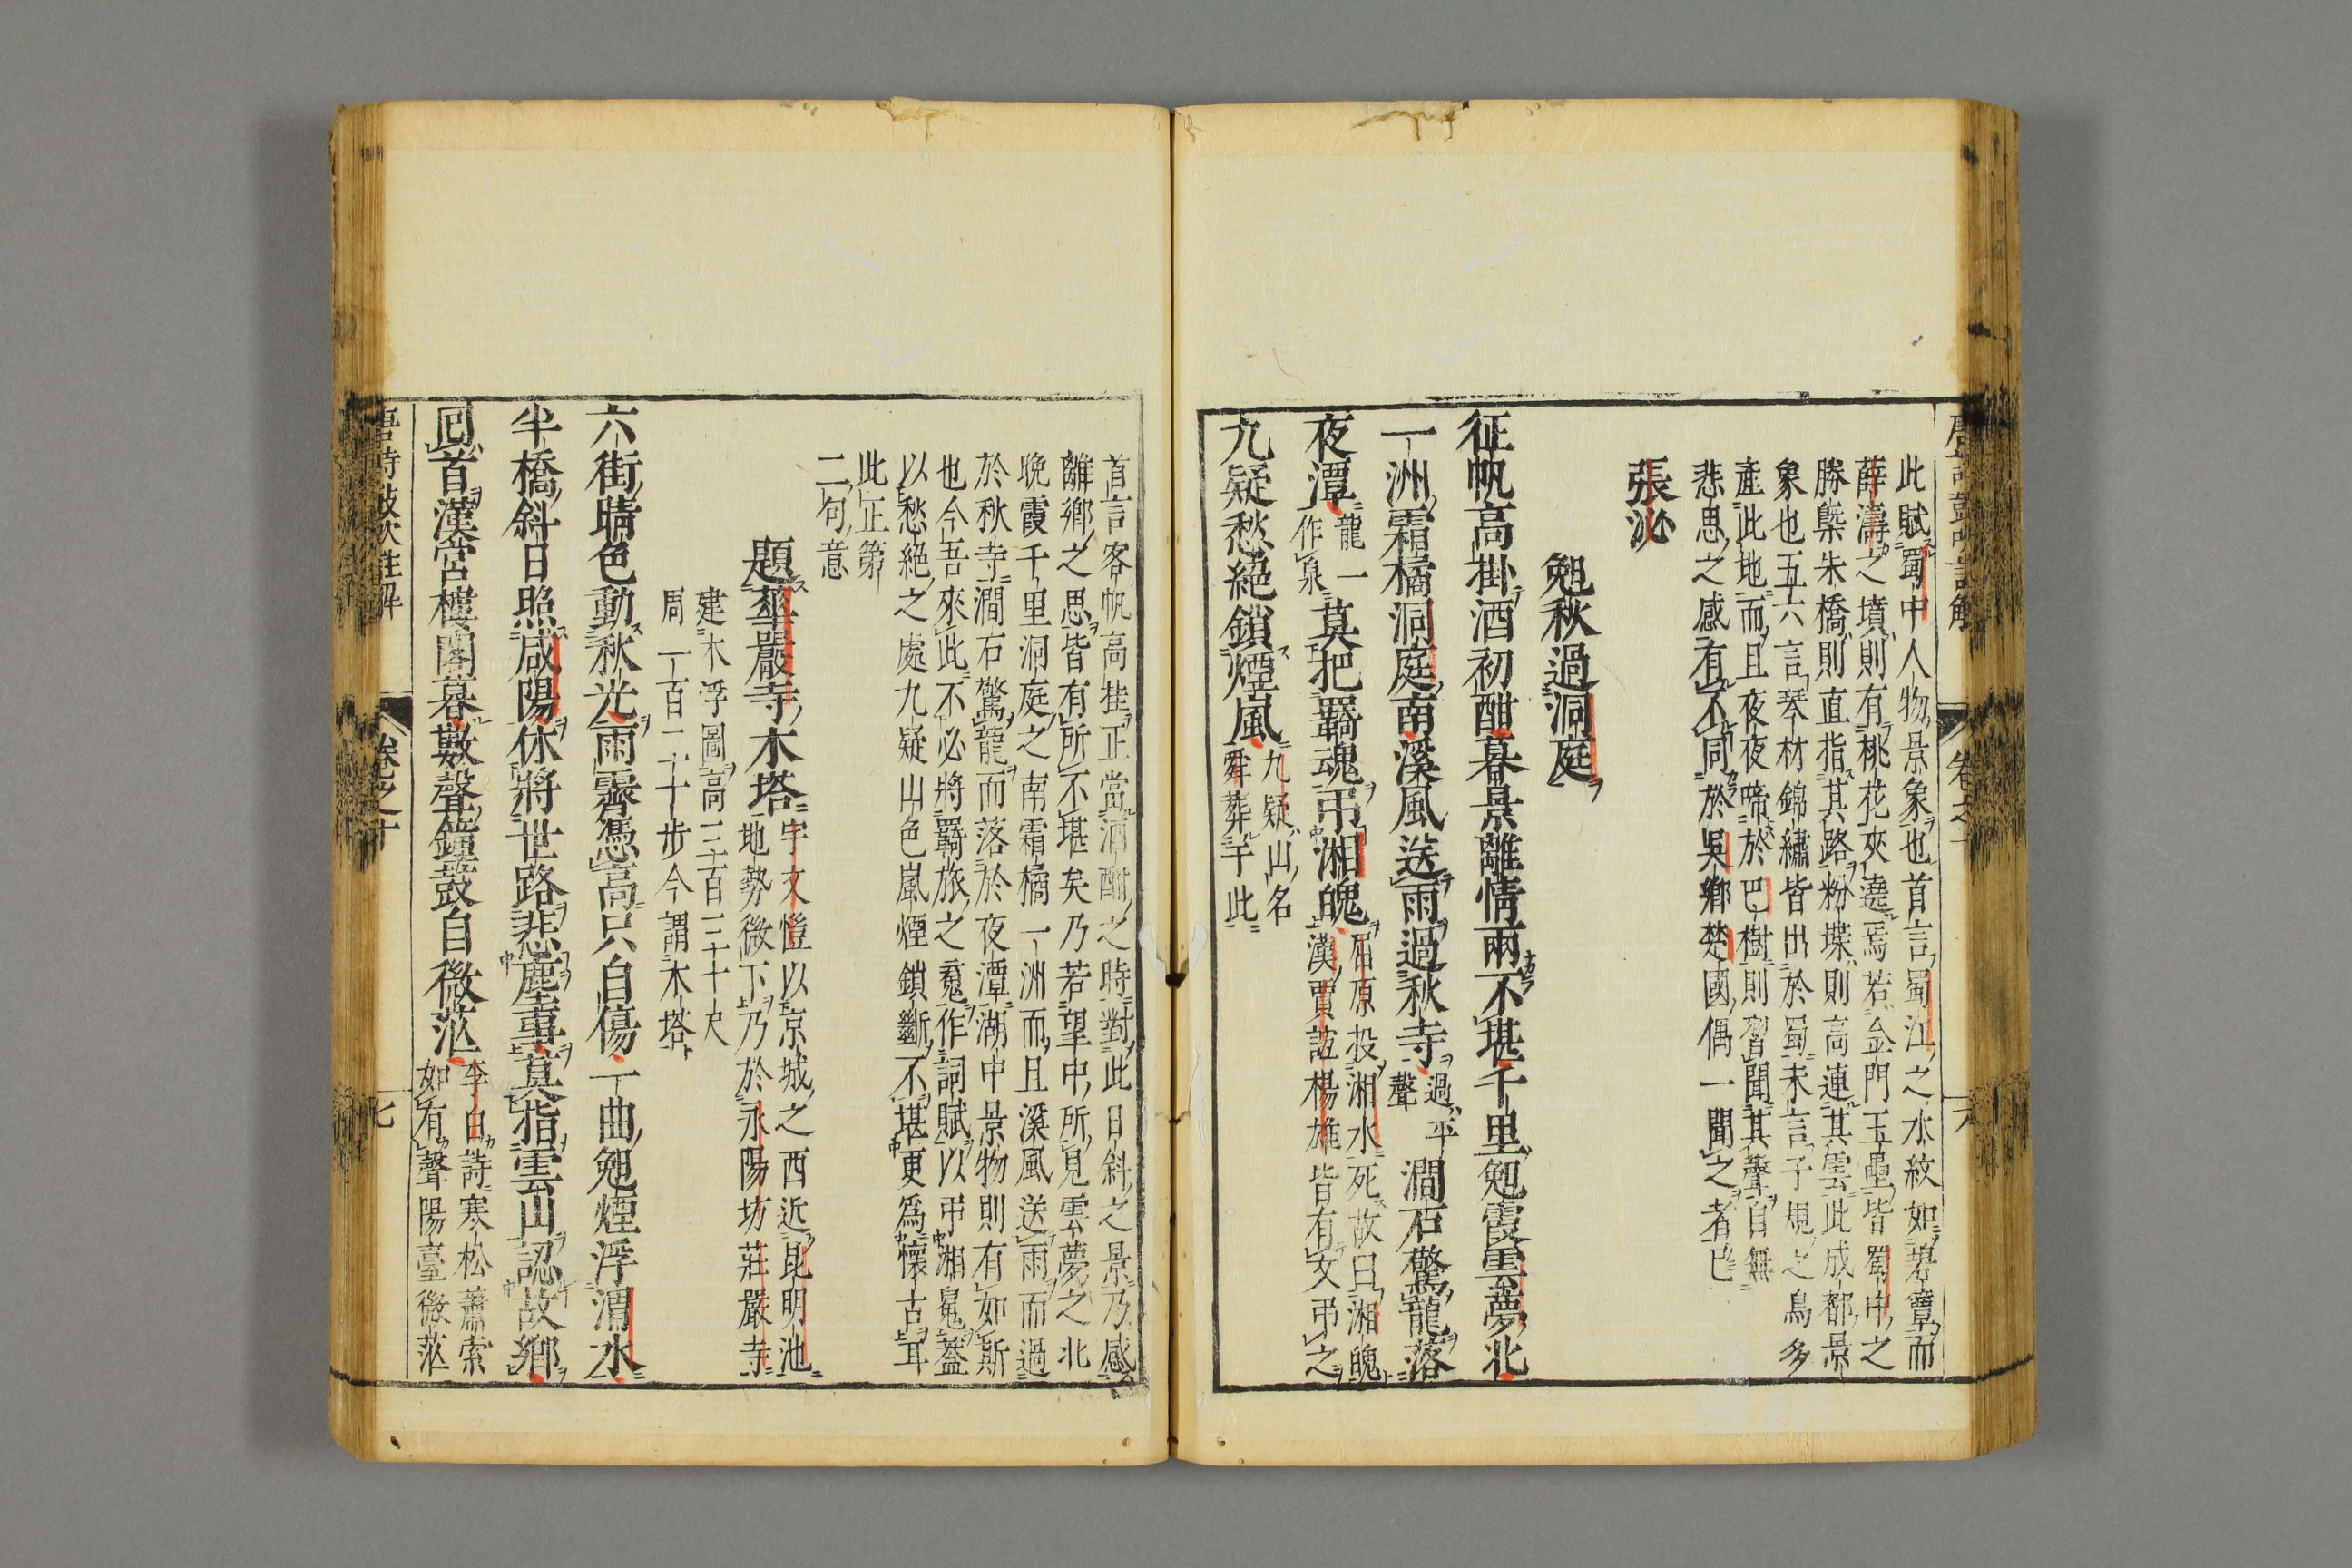 此賦蜀中人物景象也首言蜀江之水紋如碧簟而
薛濤之墳則有桃花夾遶焉若金門玉壘皆蜀中之
勝槩朱橋則直指其路粉堞則高連其雲此成都景
象也五六言琴材錦繡皆出於蜀末言子規之鳥多
產此地而且夜夜啼於巴樹則習聞其聲自無
悲思之感有不同於吳鄉楚國偶一聞之者已
張泌
晚秋過洞庭
征帆高掛酒初酣暮景離情兩不堪千里晚霞雲夢北
一洲霜橘洞庭南溪風送雨過秋寺過平聲澗石驚龍落
夜潭龍一作泉莫把羇魂弔湘魄屈原投湘水死故曰湘魄漢賈誼楊雄皆有文弔之
九疑愁絕鎖煙嵐九疑山名舜葬于此
首言客帆高挂正當酒酣之時對此日斜之景乃感
離鄉之思皆有所不堪矣乃若望中所見雲夢之北
晚霞千里洞庭之南霜橘一洲而且溪風送雨而過
於秋寺澗石驚龍而落於夜潭湖中景物則有如斯
也今吾來此不必將羇旅之䰟作詞賦以弔湘䰟蓋
以愁絕之處九疑山色嵐煙鎖斷不堪更爲懷古耳
此正第
二句意
題華嚴寺木塔宇文愷以京城之西近昆明池地勢微下乃於永陽坊莊嚴寺
建木浮圖高三百三十尺
周一百二十步今謂木塔
六街晴色動秋光雨霽憑高只自傷一曲晚煙浮渭水
半橋斜日照咸陽休將世路悲塵事莫指雲山認故鄉
回首漢宮樓閣暮數聲鐘鼓自微茫李白詩寒松蕭索如有聲陽臺微茫
卷之十
七